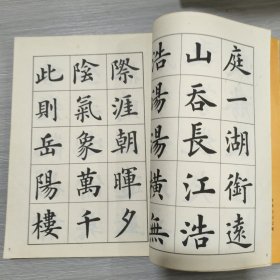 庭一湖銜遠
山吞長江浩
浩湯湯橫無
際涯朝暉夕
陰氣象萬千
此則岳陽樓